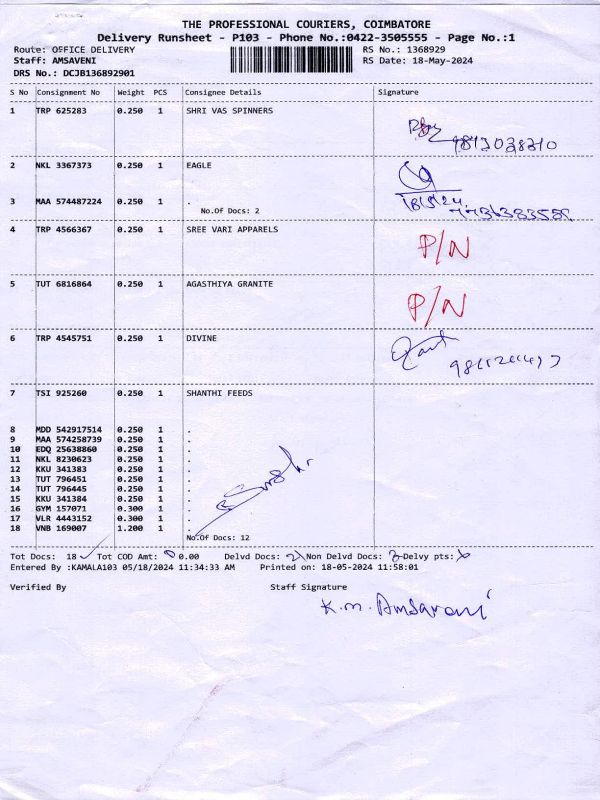 THE PROFESSIONAL COURIERS, COIMBATORE
Delivery Runsheet - P103 - Phone No.:0422-3505555 - Page No.:1
Route: OFFICE DELIVERY RS No.: 1368929
Staff: AMSAVENI RS Date: 18-May-2024
DRS No.: DCJB136892901
S No Consignment No Weight PCS Consignee Details Signature
1 TRP 625283 0.250 1 SHRI VAS SPINNERS
2 NKL 3367373 0.250 1 EAGLE
3 MAA 574487224 0.250 1 .
18/5/24
No.Of Docs: 2
4 TRP 4566367 0.250 1 SREE VARI APPARELS
P/N
5 TUT 6816864 0.250 1 AGASTHIYA GRANITE
P/N
6 TRP 4545751 0.250 1 DIVINE
7 TSI 925260 0.250 1 SHANTHI FEEDS
8 MDD 542917514 0.250 1 .
9 MAA 574258739 0.250 1 .
10 EDQ 25638860 0.250 1 .
11 NKL 8230623 0.250 1 .
12 KKU 341383 0.250 1 .
13 TUT 796451 0.250 1 .
14 TUT 796445 0.250 1 .
15 KKU 341384 0.250 1 .
16 GYM 157071 0.300 1 .
17 VLR 4443152 0.300 1 .
18 VNB 169007 1.200 1 .
No.Of Docs: 12
Tot Docs: 18 Tot COD Amt: 0.00 Delvd Docs: Non Delvd Docs: Delvy pts:
Entered By :KAMALA103 05/18/2024 11:34:33 AM Printed on: 18-05-2024 11:58:01
Verified By Staff Signature
K.M. Amsaveni